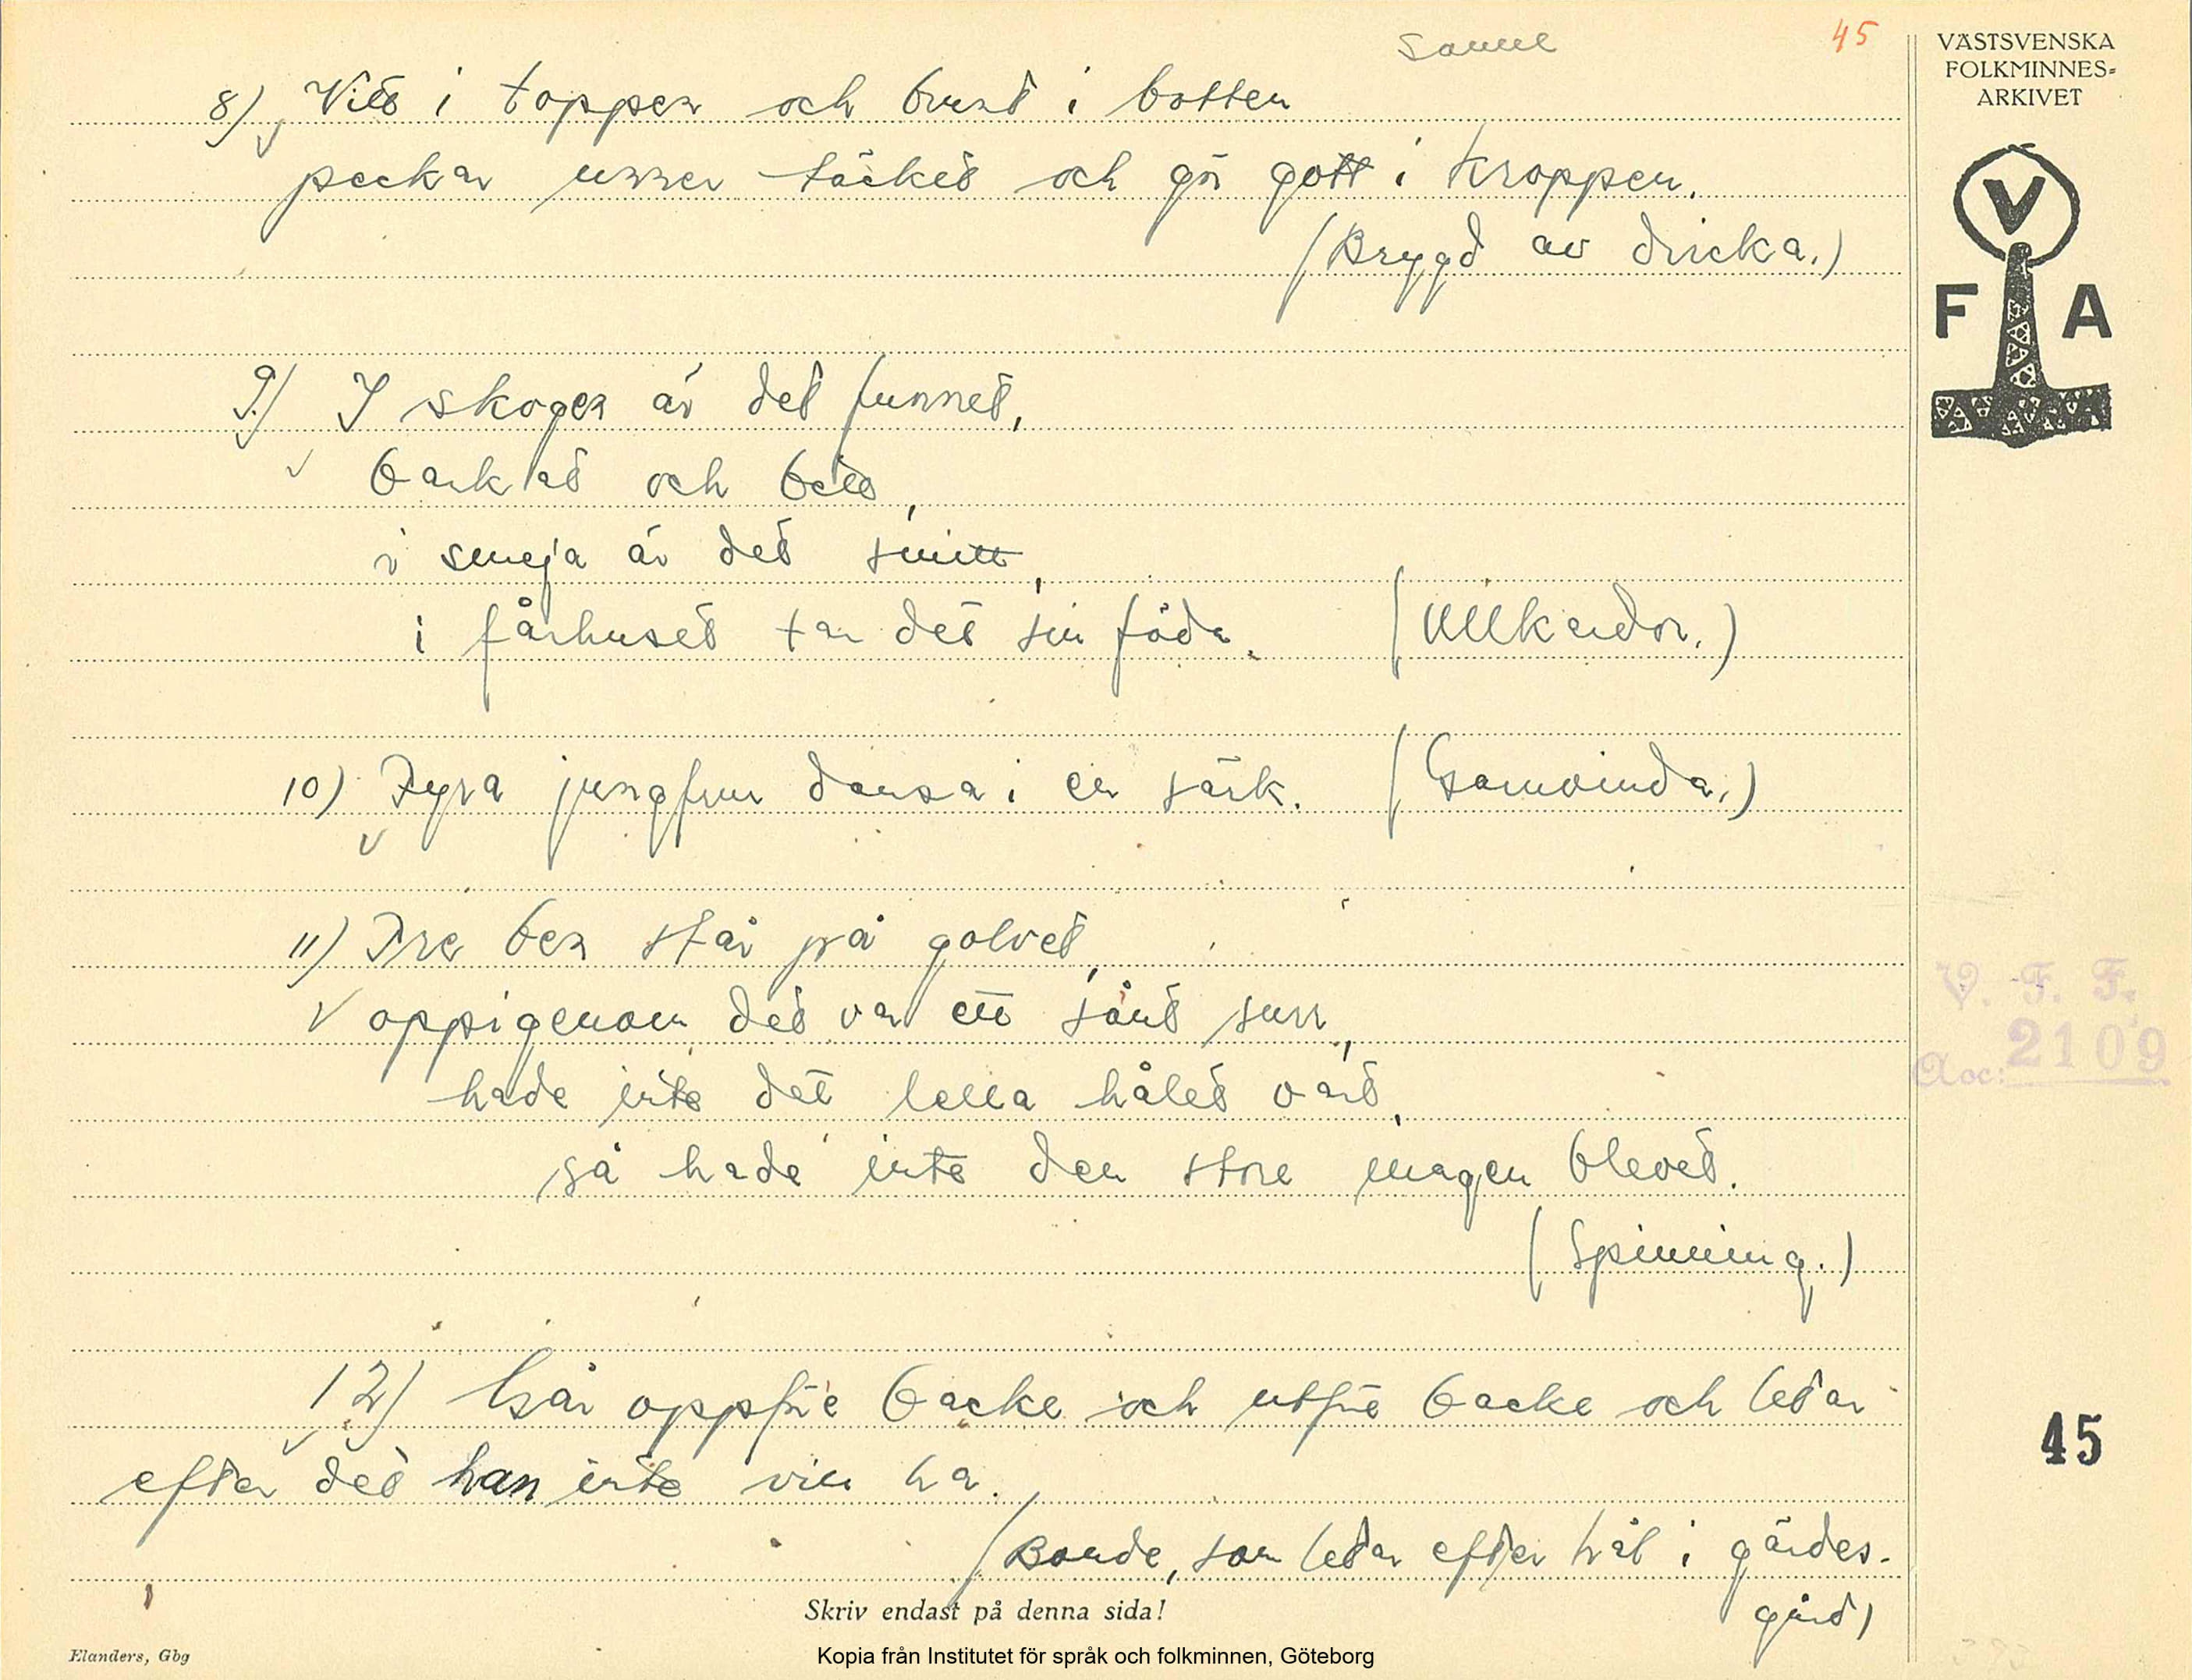 Samme
45
VÄSTSVENSKA
FOLKMINNES=
ARKIVET
V
F A
8) Vitt i toppen och brunt i botten
peckar unner täcket och gör gott i kroppen.
(Brygd av dricka.)
9) I skogen är det funnet,
barkat och
i smeja är det smitt,
i fårhuset tar det sin föda. (Ullkardor.)
10) Fyra jungfrur dansa i en särk. (Garnvinda.)
11) Tre ben står på golvet,
oppigenom det var ett sånt surr,
hade inte det lella hålet vart,
så hade inte den store magen blevet.
(Spinning.)
V. F. F.
Acc: 2109
12) Går oppför backe och utför backe och letar
efter det han inte vill ha.
(Bonde, som letar efter hål i gärdes-
gård)
45
Skriv endast på denna sida!
Elanders, Gbg
Kopia från Institutet för språk och folkminnen, Göteborg